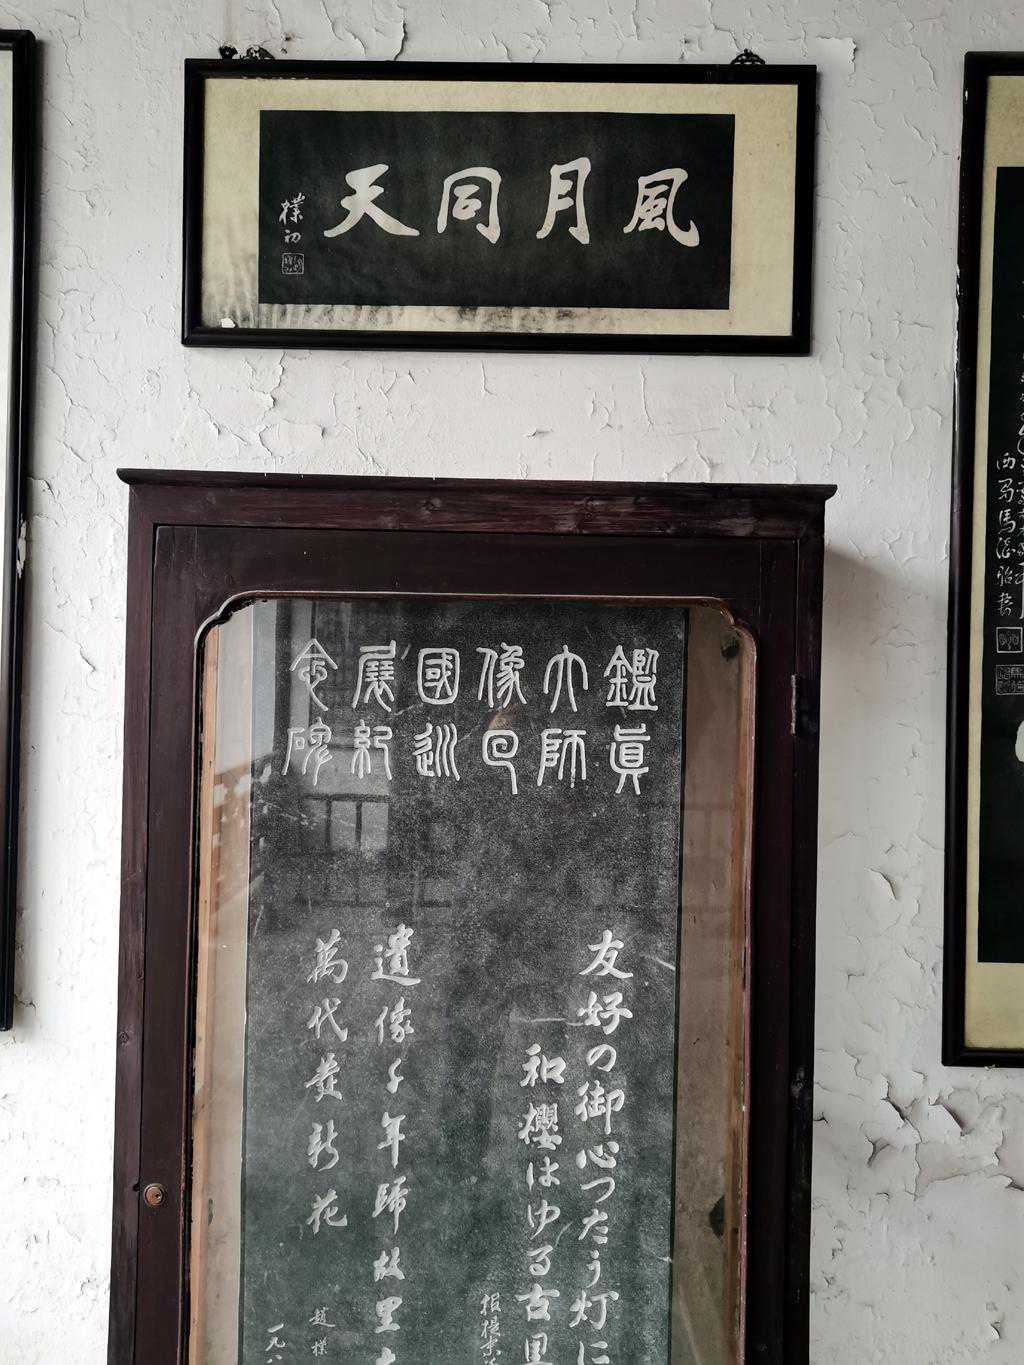 風月同天
樸初
鑑真
大師
像回
國巡
展紀
念碑
友好の御心つたう灯に
和櫻はゆる古里
招提寺
遺像千年歸故里
萬代發新花
趙樸
一九八